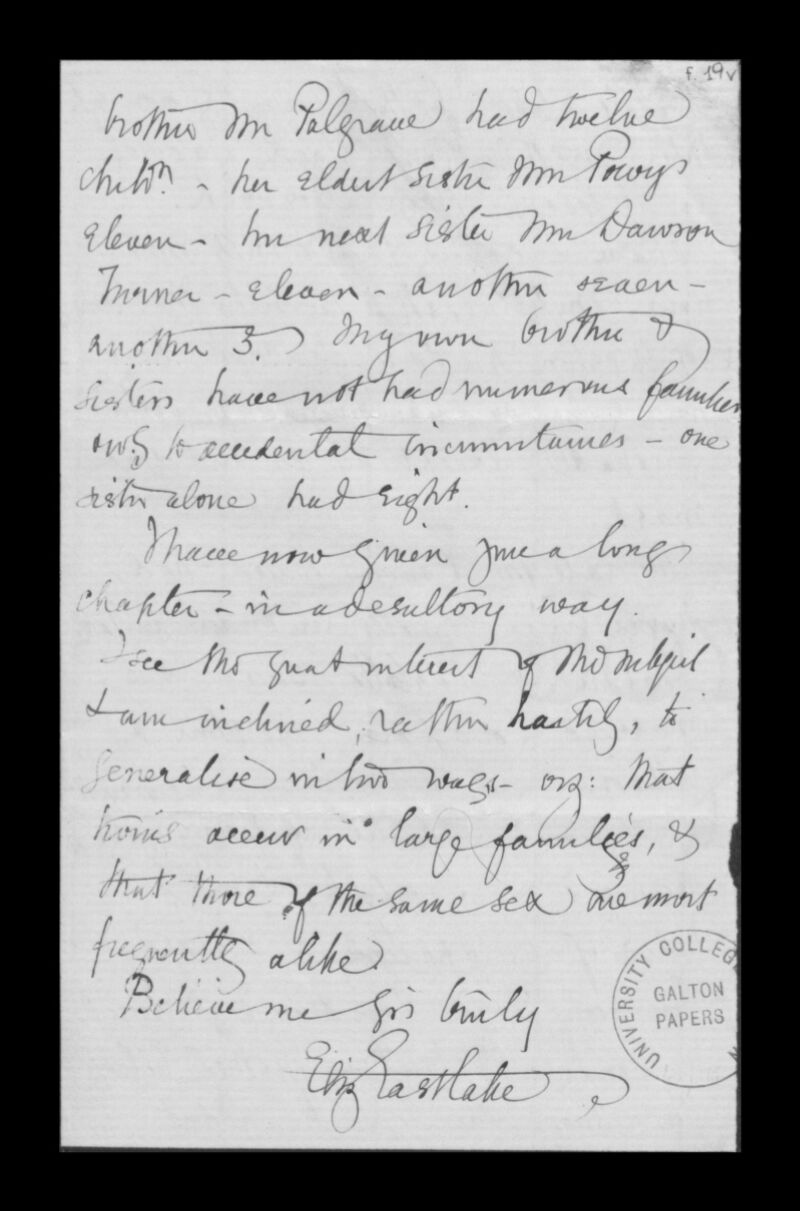 f. 19v
brother Mr Palgrave had twelve
childn. - her eldest sister Mrs Powys
eleven - her next sister Mrs Dawson
Turner - eleven - another seven -
another 3. My own brother &
sisters have not had numerous families
owg to accidental circumstances - one
sister alone had eight.
I have now given you a long
chapter - in a desultory way.
I see the great interest of the subject
& am inclined, rather hastily, to
generalise in two ways - viz: that
twins occur in large families, &
that those of the same sex are most
frequently alike.
Believe me Yrs truly
Eliz Eastlake
UNIVERSITY COLLEGE
GALTON
PAPERS